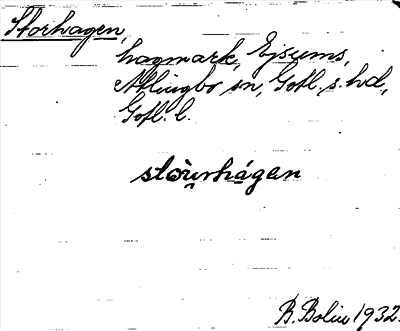 Storhagen,
hagmark, Ejsums,
Atlingbo sn, Gotl. s. hd,
Gotl. l.
stòu̯rhágan
B. Bolin 1932.